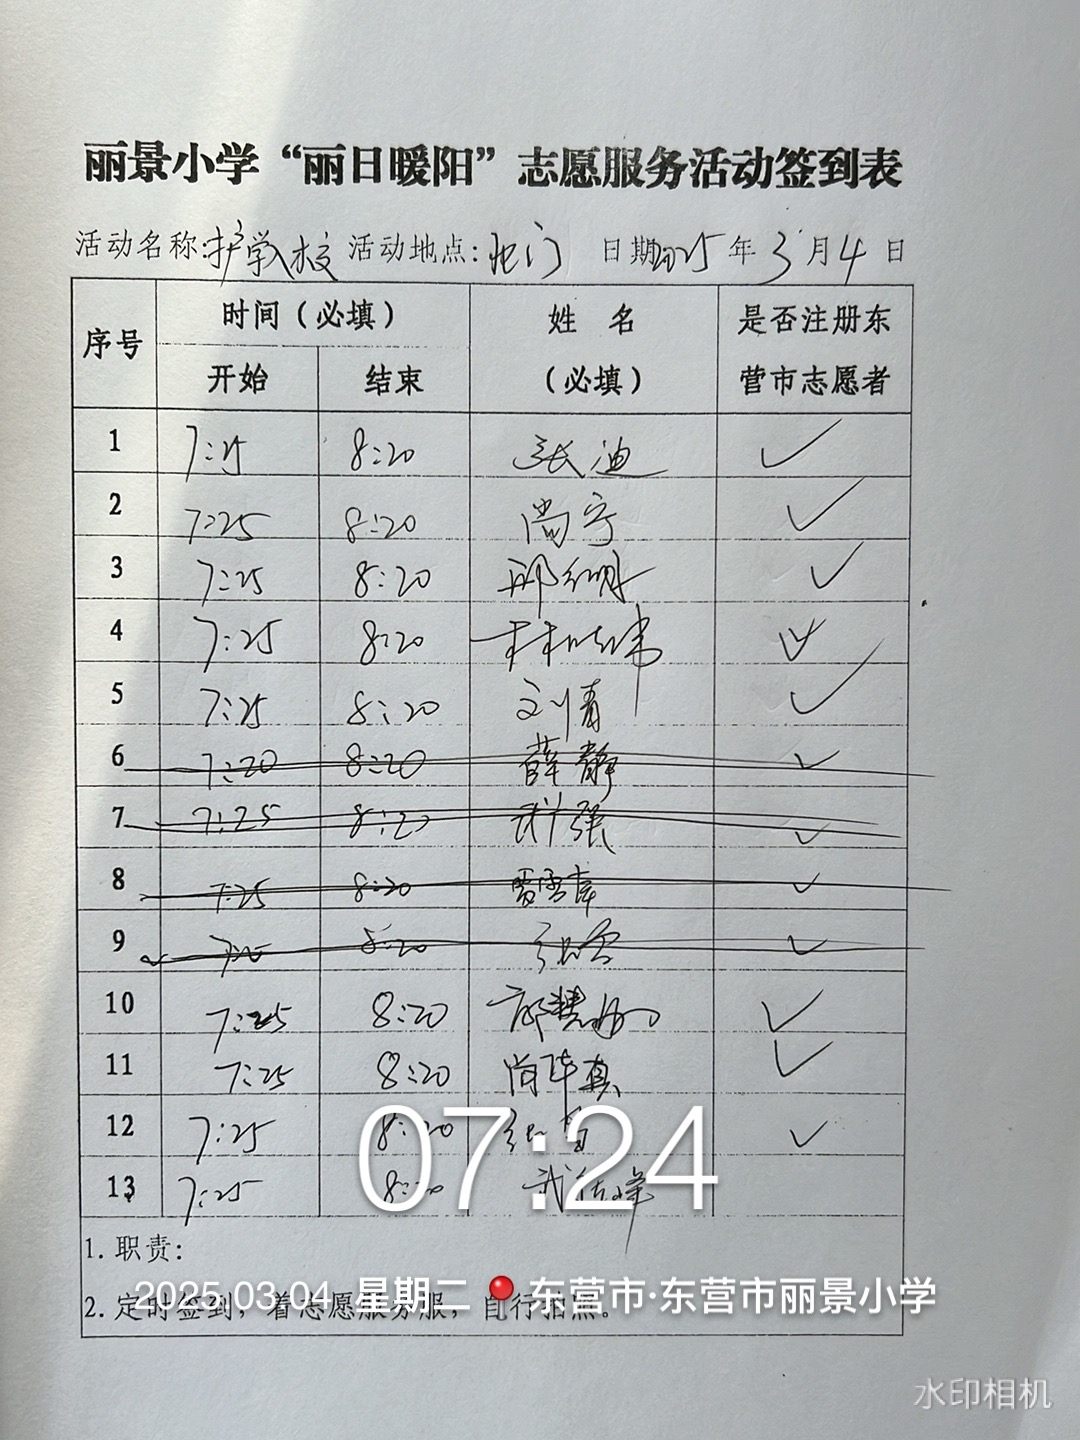 丽景小学“丽日暖阳”志愿服务活动签到表
活动名称:护学校 活动地点:北门 日期2025年3月4日
序号 时间（必填） 姓 名 是否注册东
开始 结束 （必填） 营市志愿者
1 7:25 8:20 张迪 ✓
2 7:25 8:20 尚宁 ✓
3 7:25 8:20 ✓
4 7:25 8:20 ✓
5 7:25 8:20 刘青 ✓
6 7:20 8:20 薛静 ✓
7 7:25 8:20 ✓
8 7:25 8:20 ✓
9 7:25 8:20 ✓
10 7:25 8:20 ✓
11 7:25 8:20 ✓
12 7:25 8:20 ✓
13 7:25 8:20
07:24
1. 职责:
2025.03.04 星期二 东营市·东营市丽景小学
2. 定时签到，着志愿服务服，自行拍照。
水印相机